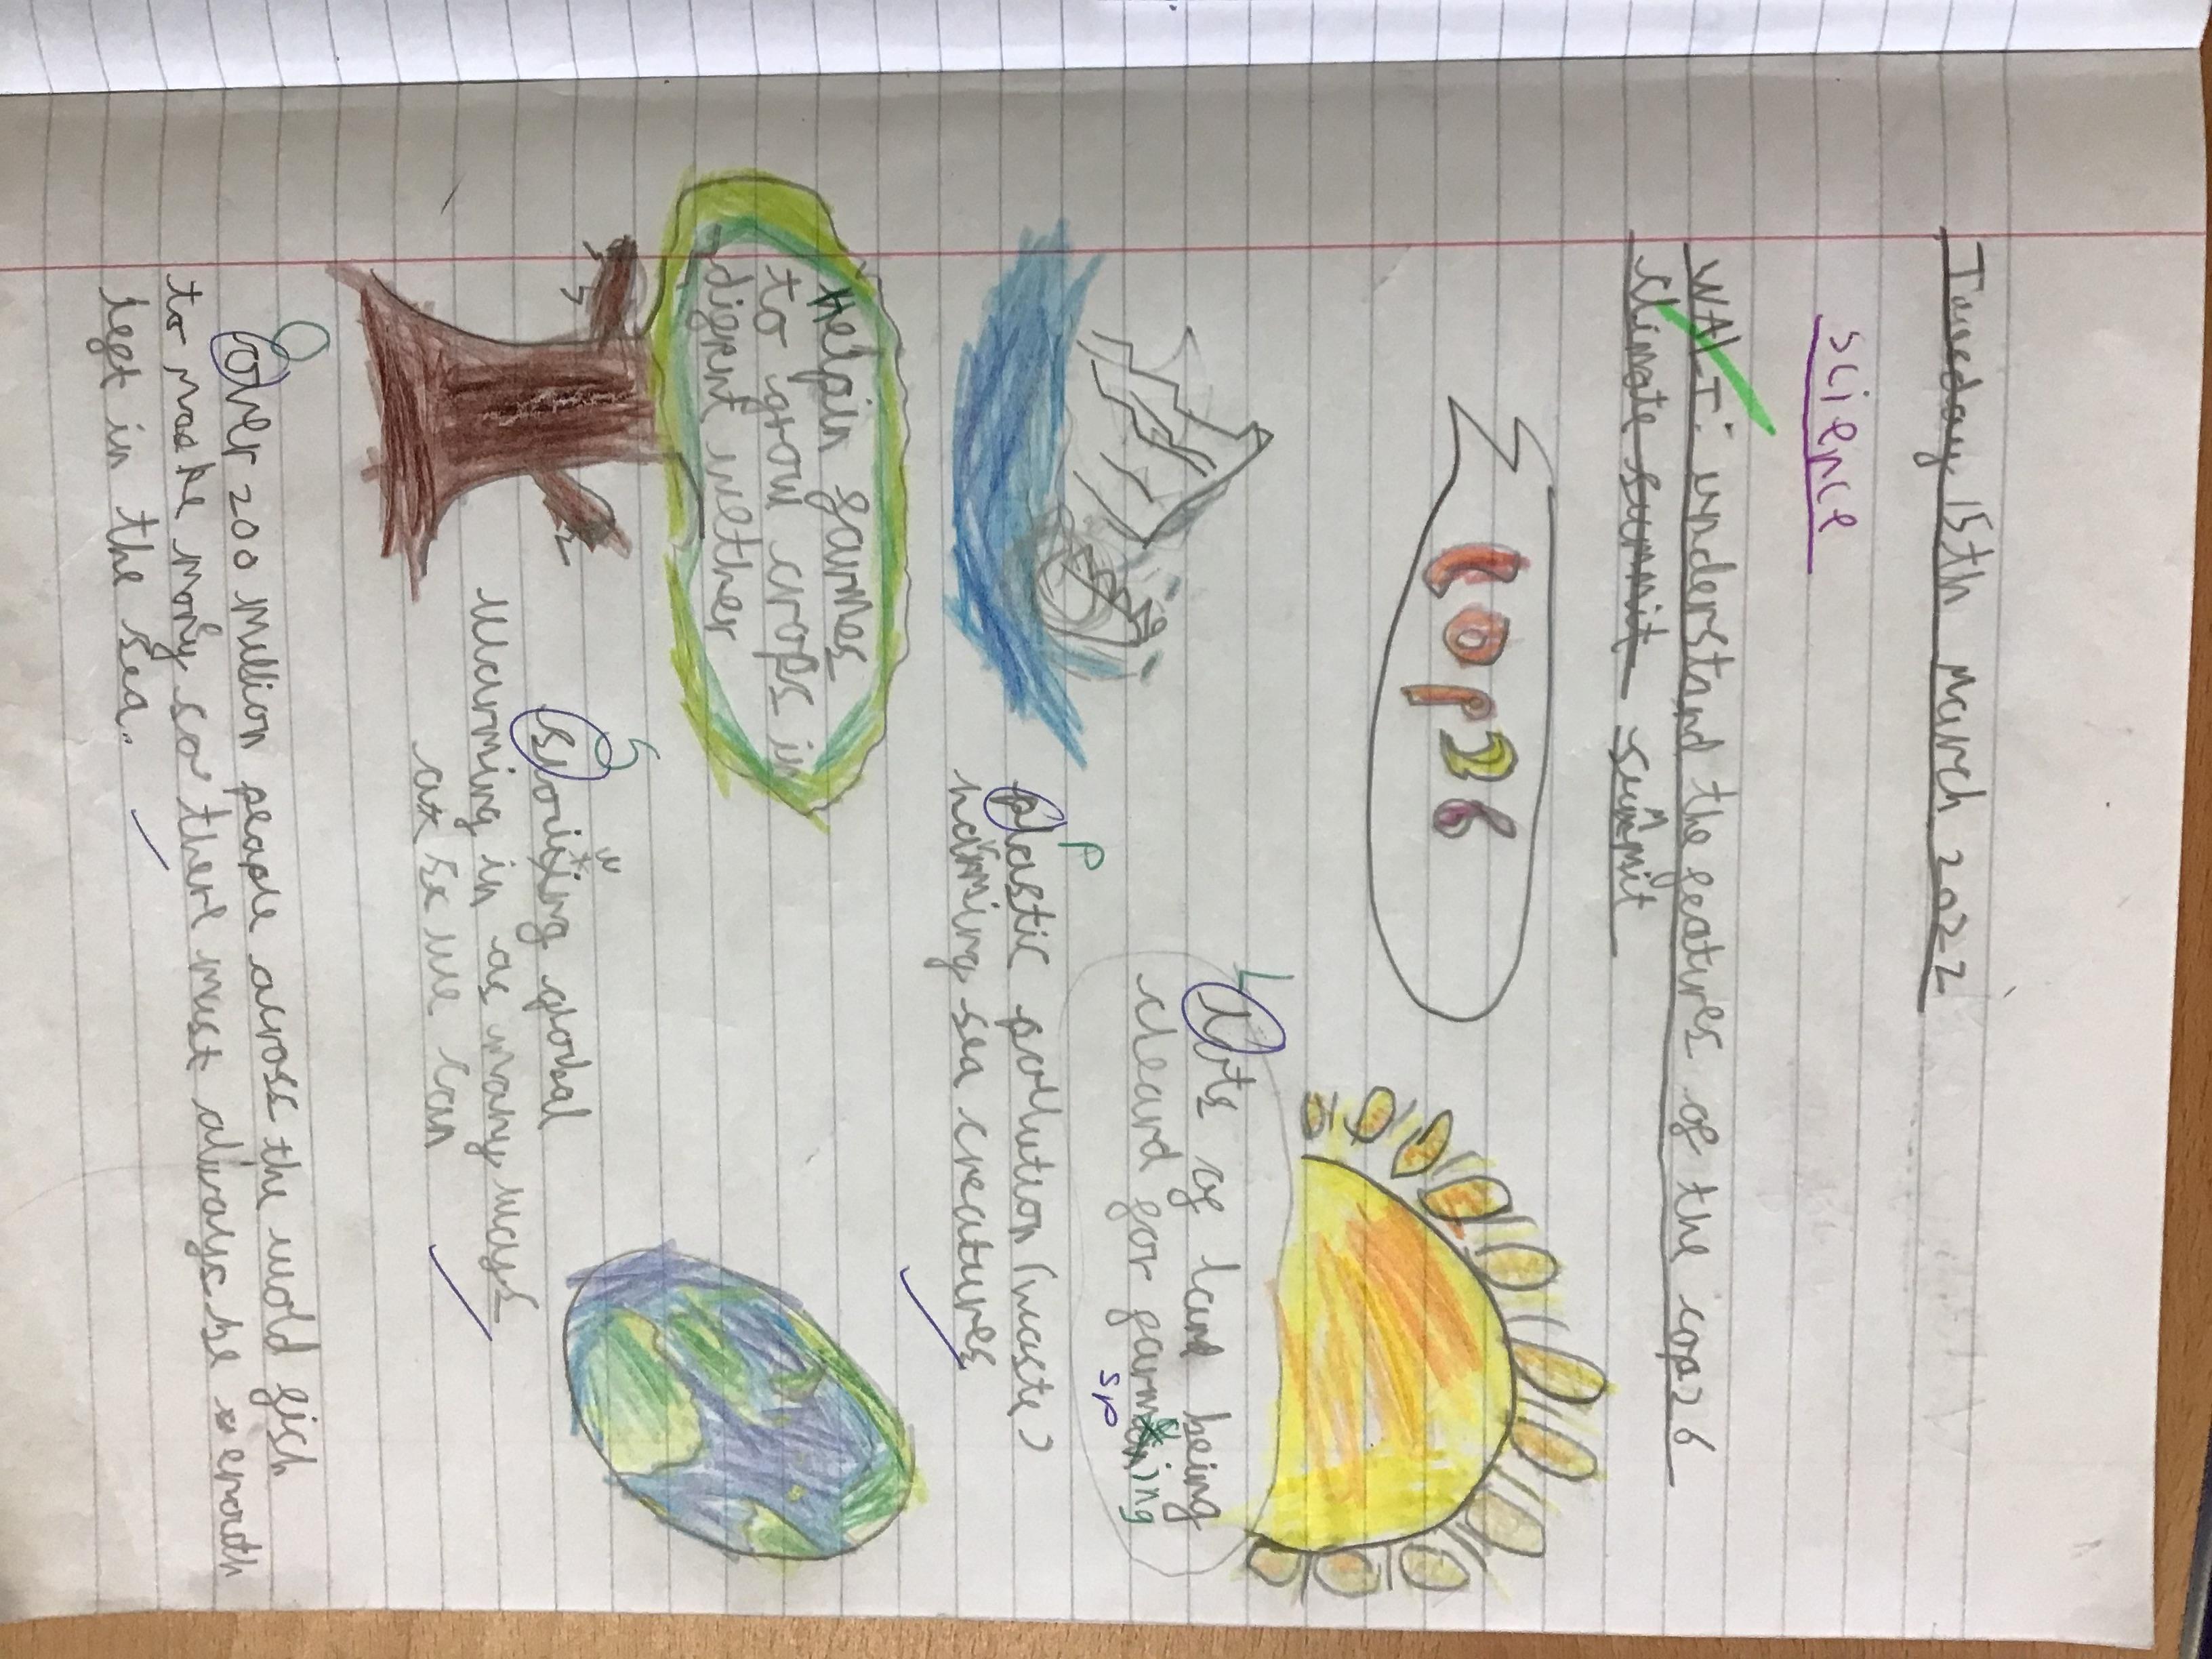 Tuesday 15th March 2022
science
WALT: understand the features of the cop26
climate summit summit
COP26
L
Lots of land being
cleard for farmining
sp
p
plastic pollution (waste)
harming sea creatures
Helpin farmes
to grow crops in
difrent wether
S
w
Slowing global
warming in as many ways
as we can
O
over 200 million people across the wold fish
to make mony so there must always be enouth
left in the sea.